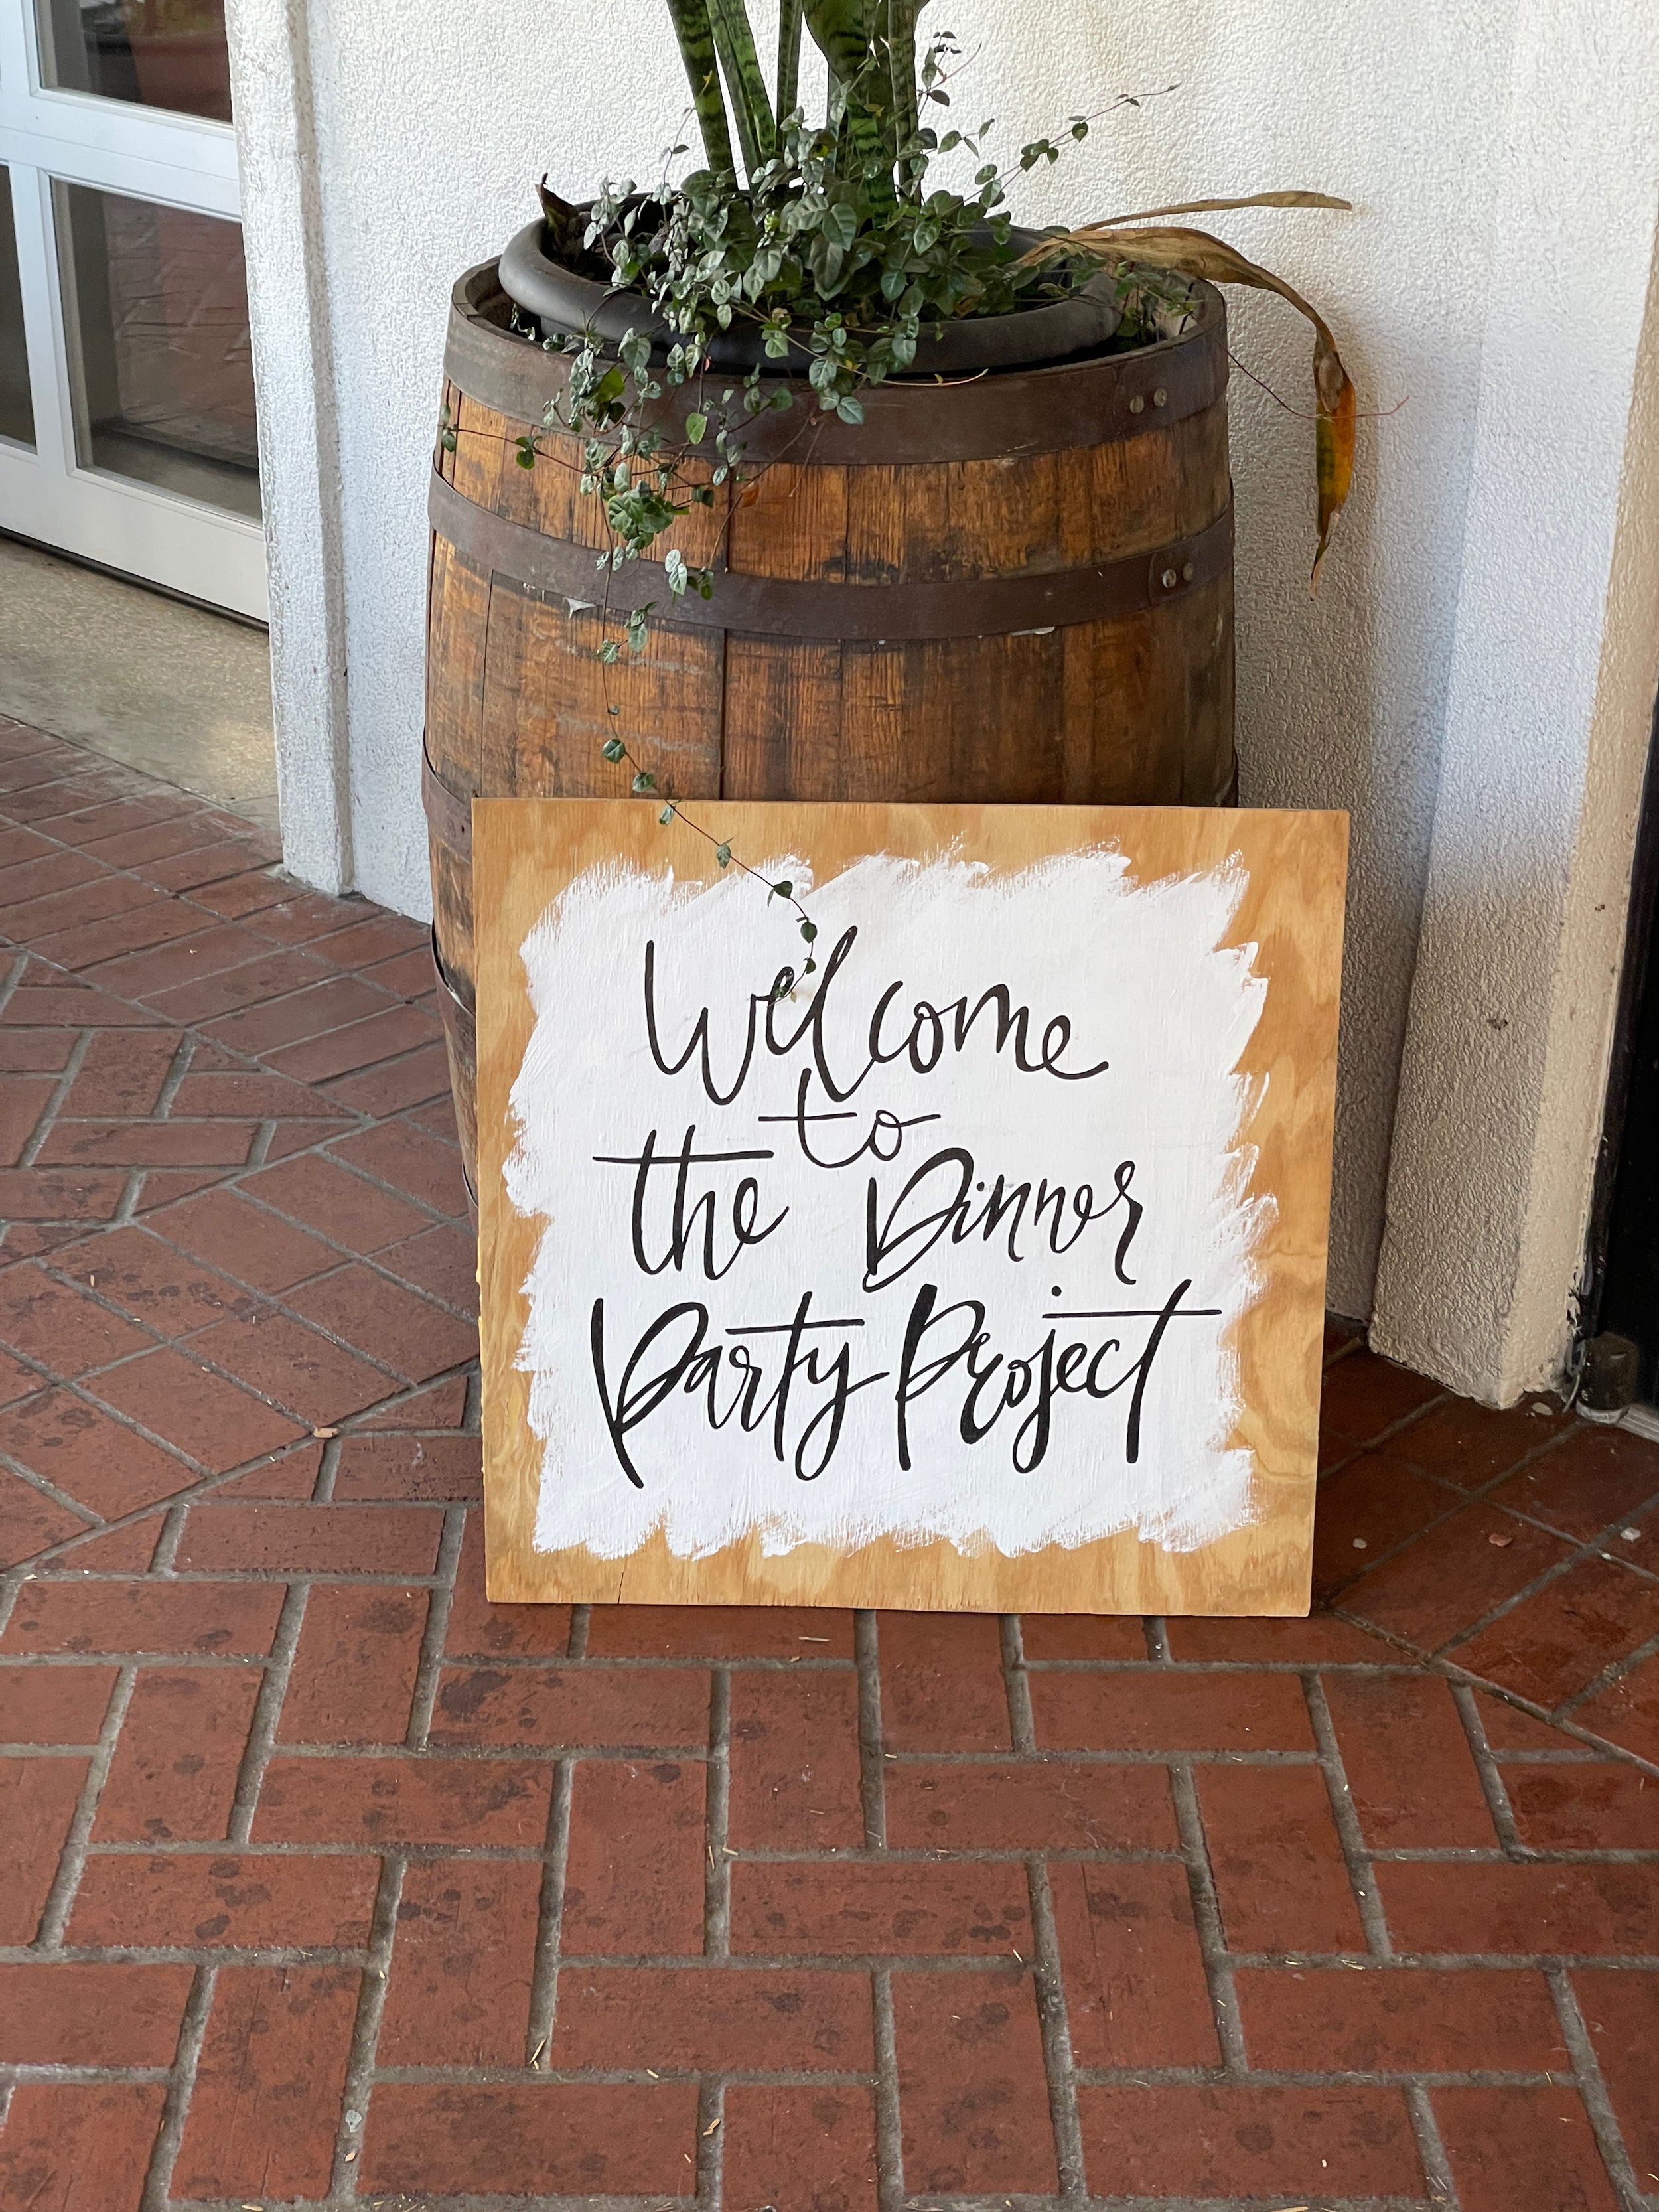 Welcome
to
the Dinner
Party Project